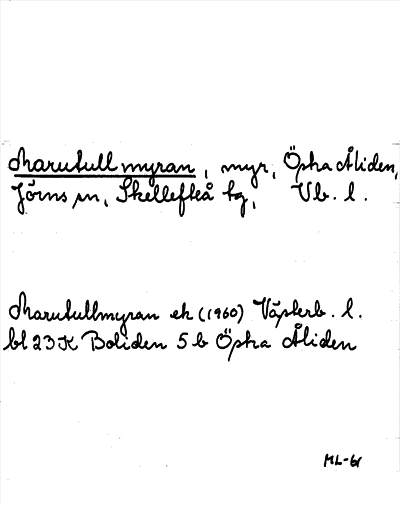 Marutullmyran, myr, Östra Åliden,
Jörns sn, Skellefteå tg, Vb. l.
Marutullmyran ek (1960) Västerb. l.
bl 23 K Boliden 5 b Östra Åliden
ML-61